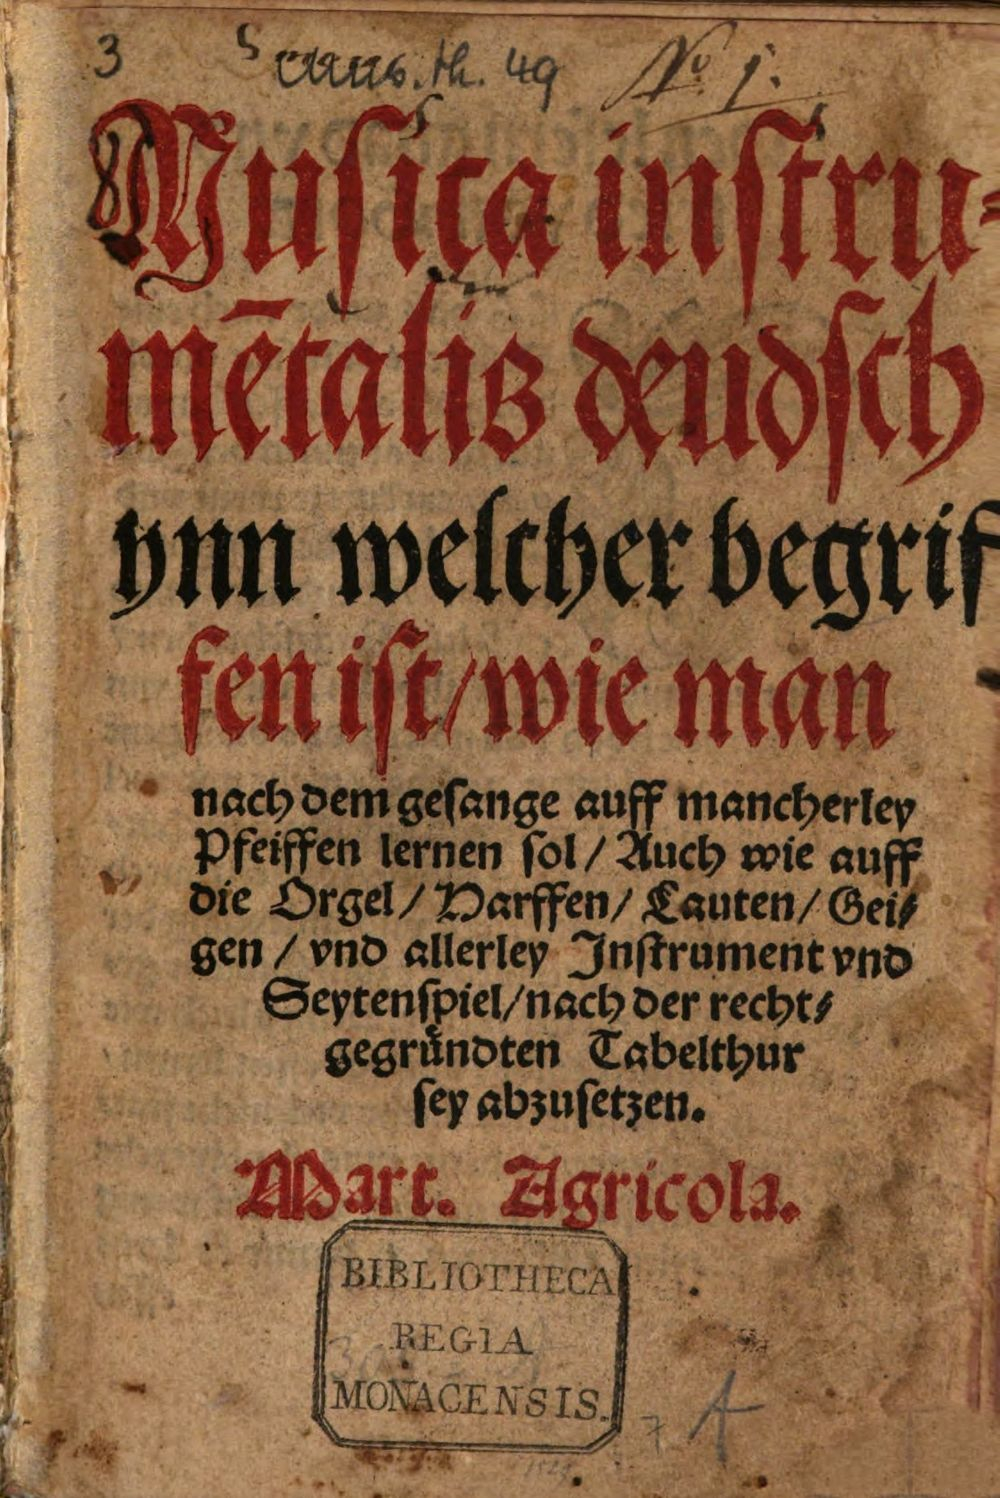 3 mus. th. 49 No 1.
Musica instru-
mētalis deudsch
ynn welcher begrif
fen ist/ wie man
nach dem gesange auff mancherley
Pfeiffen lernen sol / Auch wie auff
die Orgel / Harffen / Lauten / Gei-
gen / vnd allerley Instrument vnd
Seytenspiel / nach der recht-
gegründten Tabelthur
sey abzusetzen.
Mart. Agricola.
BIBLIOTHECA
REGIA
MONACENSIS.
A